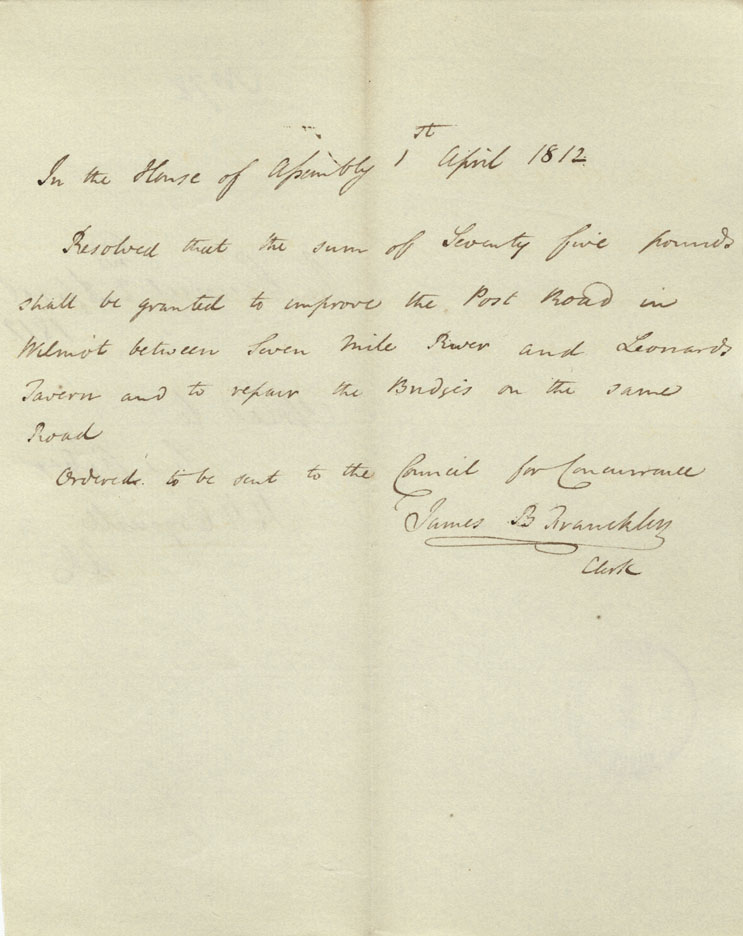 In the House of Assembly 1st April 1812
Resolved that the sum of Seventy five pounds
shall be granted to improve the Post Road in
Wilmot between Seven Mile River and Leonards
Tavern and to repair the Bridges on the same
Road
Ordered. to be sent to the Council for Concurrence
James B Franckley
Clerk